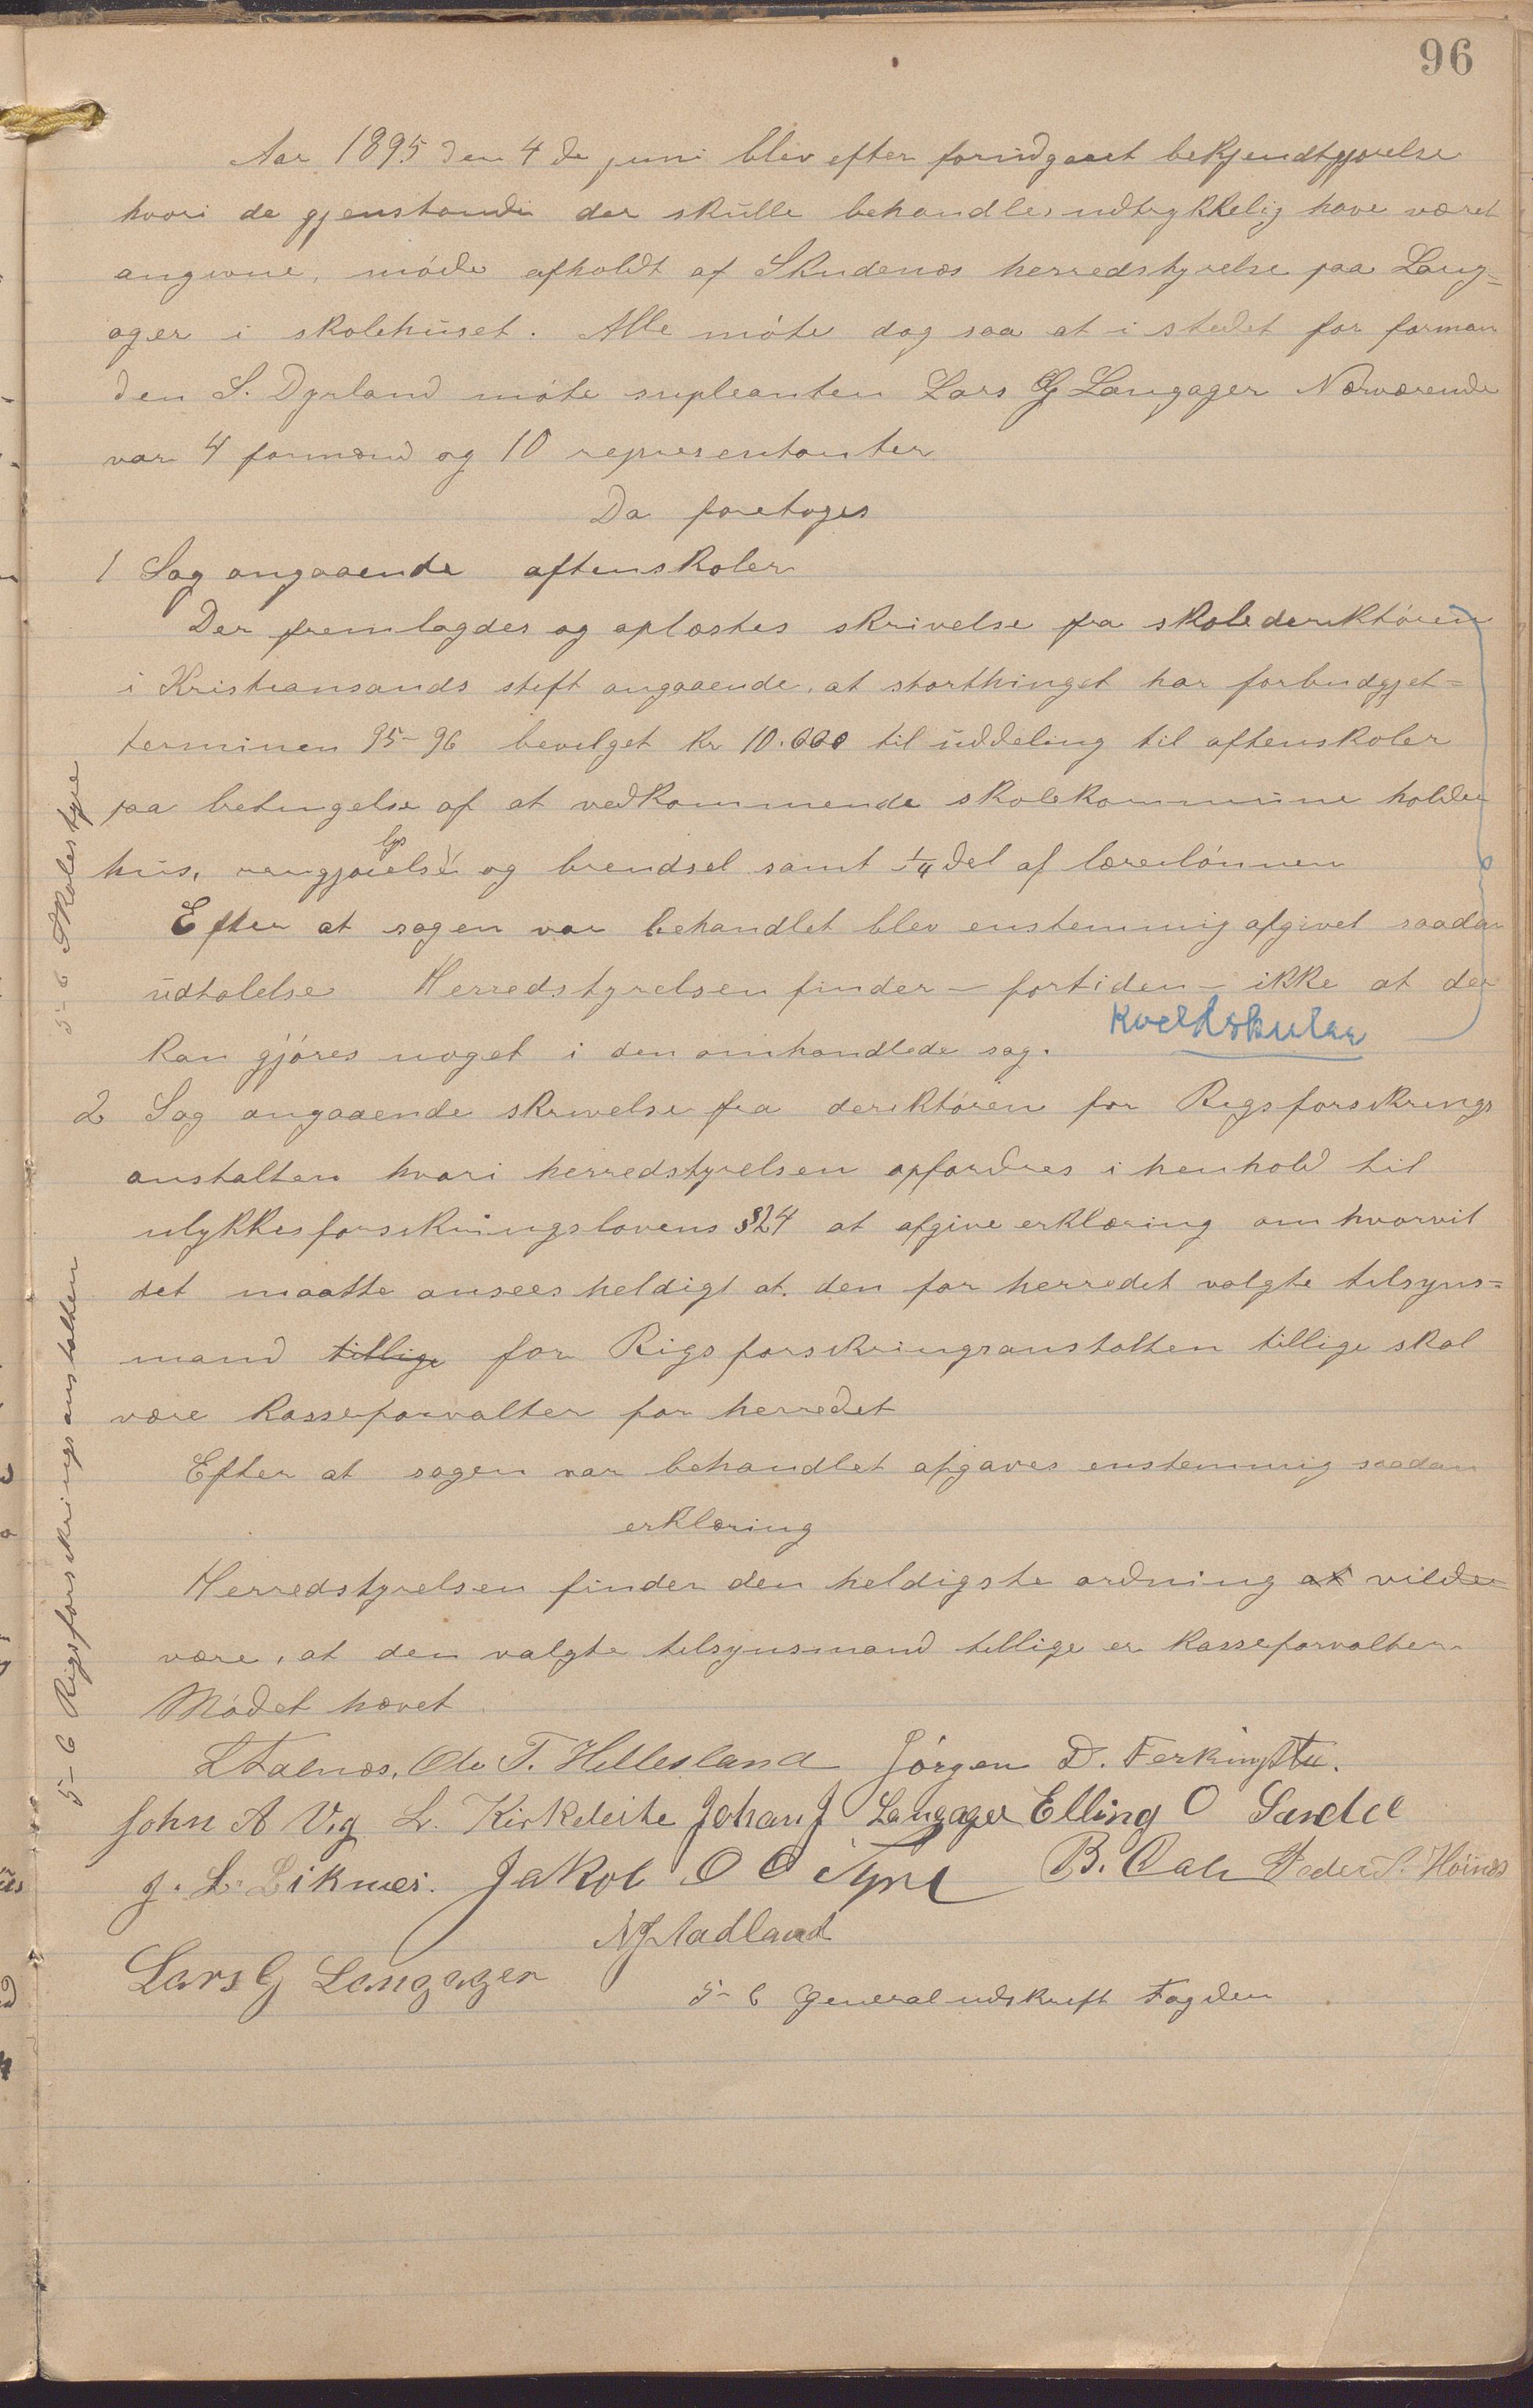 96
Aar 1895 den 4de juni blev efter forudgaaet bekjendtgjørelse
hvori de gjenstande der skulle behandles udtrykkelig have været
angivne, møde afholdt af Skudenæs herredstyrelse paa Lang=
ager i skolehuset. Alle møte dog saa at i stedet for forman
den S. Dyrland møte supleanten Lars G Langager Nærværende
var 4 formænd og 10 representanter
Da foretoges
1 Sag angaaende aftenskoler
Der fremlagdes og oplæstes skrivelse fra skolederiktøren
i Kristiansands stift angaaende, at storthinget har forbudgjet=
terminen 95-96 bevilget kr 10.000 til uddeling til aftenskoler
paa betingelse af at vedkommende skolekommune holder
hus, rengjørelse lys og brendsel samt 1/4 del af lærerlønnen
Efter at sagen var behandlet blev enstemmig afgivet saadan
udtalelse Herredstyrelsen finder - fortiden - ikke at der
kan gjøres noget i den omhandlede sag.
Kveldskular
2 Sag angaaende skrivelse fra deriktøren for Rigsforsikrings
anstalten hvori herredstyrelsen opfordres i henhold til
ulykkesforsikringslovens §24 at afgive erklæring om hvorvit
det maatte ansees heldigt at den for herredet valgte tilsyns=
mand tillige for Rigsforsikringsanstalten tillige skal
være kasseforvalter for herredet
Efter at sagen var behandlet afgaves enstemmig saadan
erklæring
Herredstyrelsen finder den heldigste ordning at vilde
være, at den valgte tilsynsmand tillige er kasseforvalter
Mødet hævet
L Falnæs, Ole T. Hillesland Jørgen D. Ferkingstad.
John A Vig L. Kirkeleite Johan J Langager Elling O Sandve
J. L. Liknes. Jakob O Tjøs B. Dale Peder S. Høines
N J Aadland
Lars G Langager
5-6 generaludskrift Fogden
5-6 Skolestyre
5-6 Rigsforsikringsanstalten